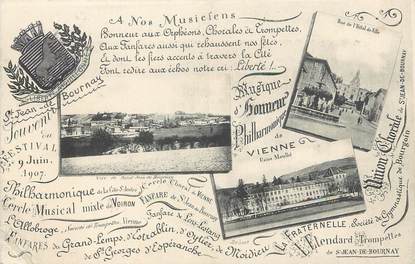 A Nos Musiciens
Honneur aux Orphéons, Chorales & Trompettes,
Aux Fanfares aussi qui rehaussent nos fêtes,
Et dont les fiers accents à travers la Cité
Font redire aux échos notre cri : Liberté !
St Jean-de-Bournay
Souvenir
du
FESTIVAL
9 Juin
1907.
Vue de Saint-Jean-de-Bournay
Rue de l'Hôtel de Ville
Musique
Honneur
Philharmonique
de
VIENNE
Usine
Union Chorale
de ST JEAN-DE-BOURNAY
Gymnastique de Bourgoin
Philharmonique de La Côte St André
Cercle Musical mixte de VOIRON
Cercle Choral de VIENNE
FANFARE de St Jean de Bournay
L'Allobroge Société de Trompettes Vienne
Fanfare de
FANFARES de Grand-Lemps, d'Estrablin, d'Oytier, de Moidieu
de St Georges d'Espéranche
LA FRATERNELLE Société de
L'Etendard Trompettes
de ST JEAN-DE-BOURNAY